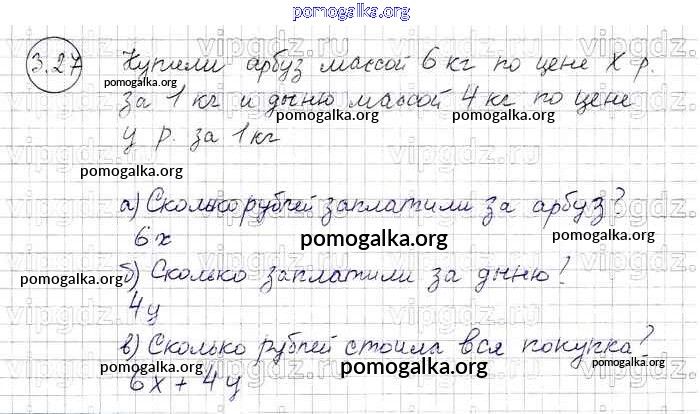 pomogalka.org
3.27 Купили арбуз массой 6 кг по цене x р.
pomogalka.org
за 1 кг и дыню массой 4 кг по цене
pomogalka.org pomogalka.org
y р. за 1 кг
vipgdz.ru vipgdz.ru vipgdz.ru
pomogalka.org
а) Сколько рублей заплатили за арбуз?
6x
pomogalka.org pomogalka.org
pomogalka.org
б) Сколько заплатили за дыню?
pomogalka.org
4y
vipgdz.ru vipgdz.ru vipgdz.ru
в) Сколько рублей стоила вся покупка?
pomogalka.org pomogalka.org
6x + 4y